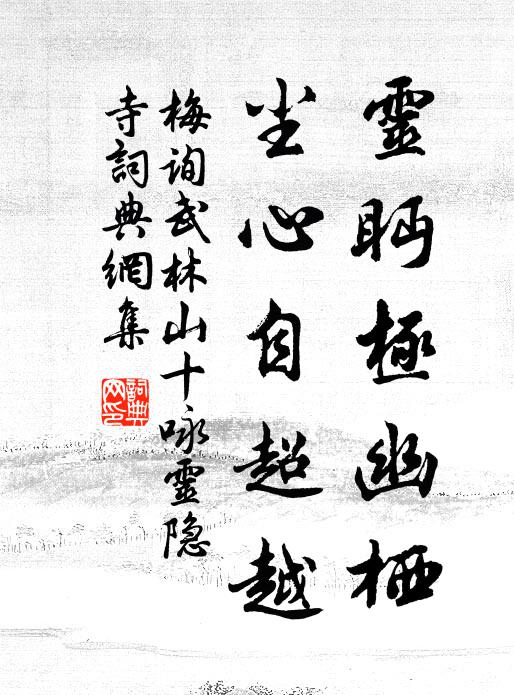 靈眄極幽栖
尘心自超越
梅询武林山十咏靈隐
寺詞典網集
詞典網印